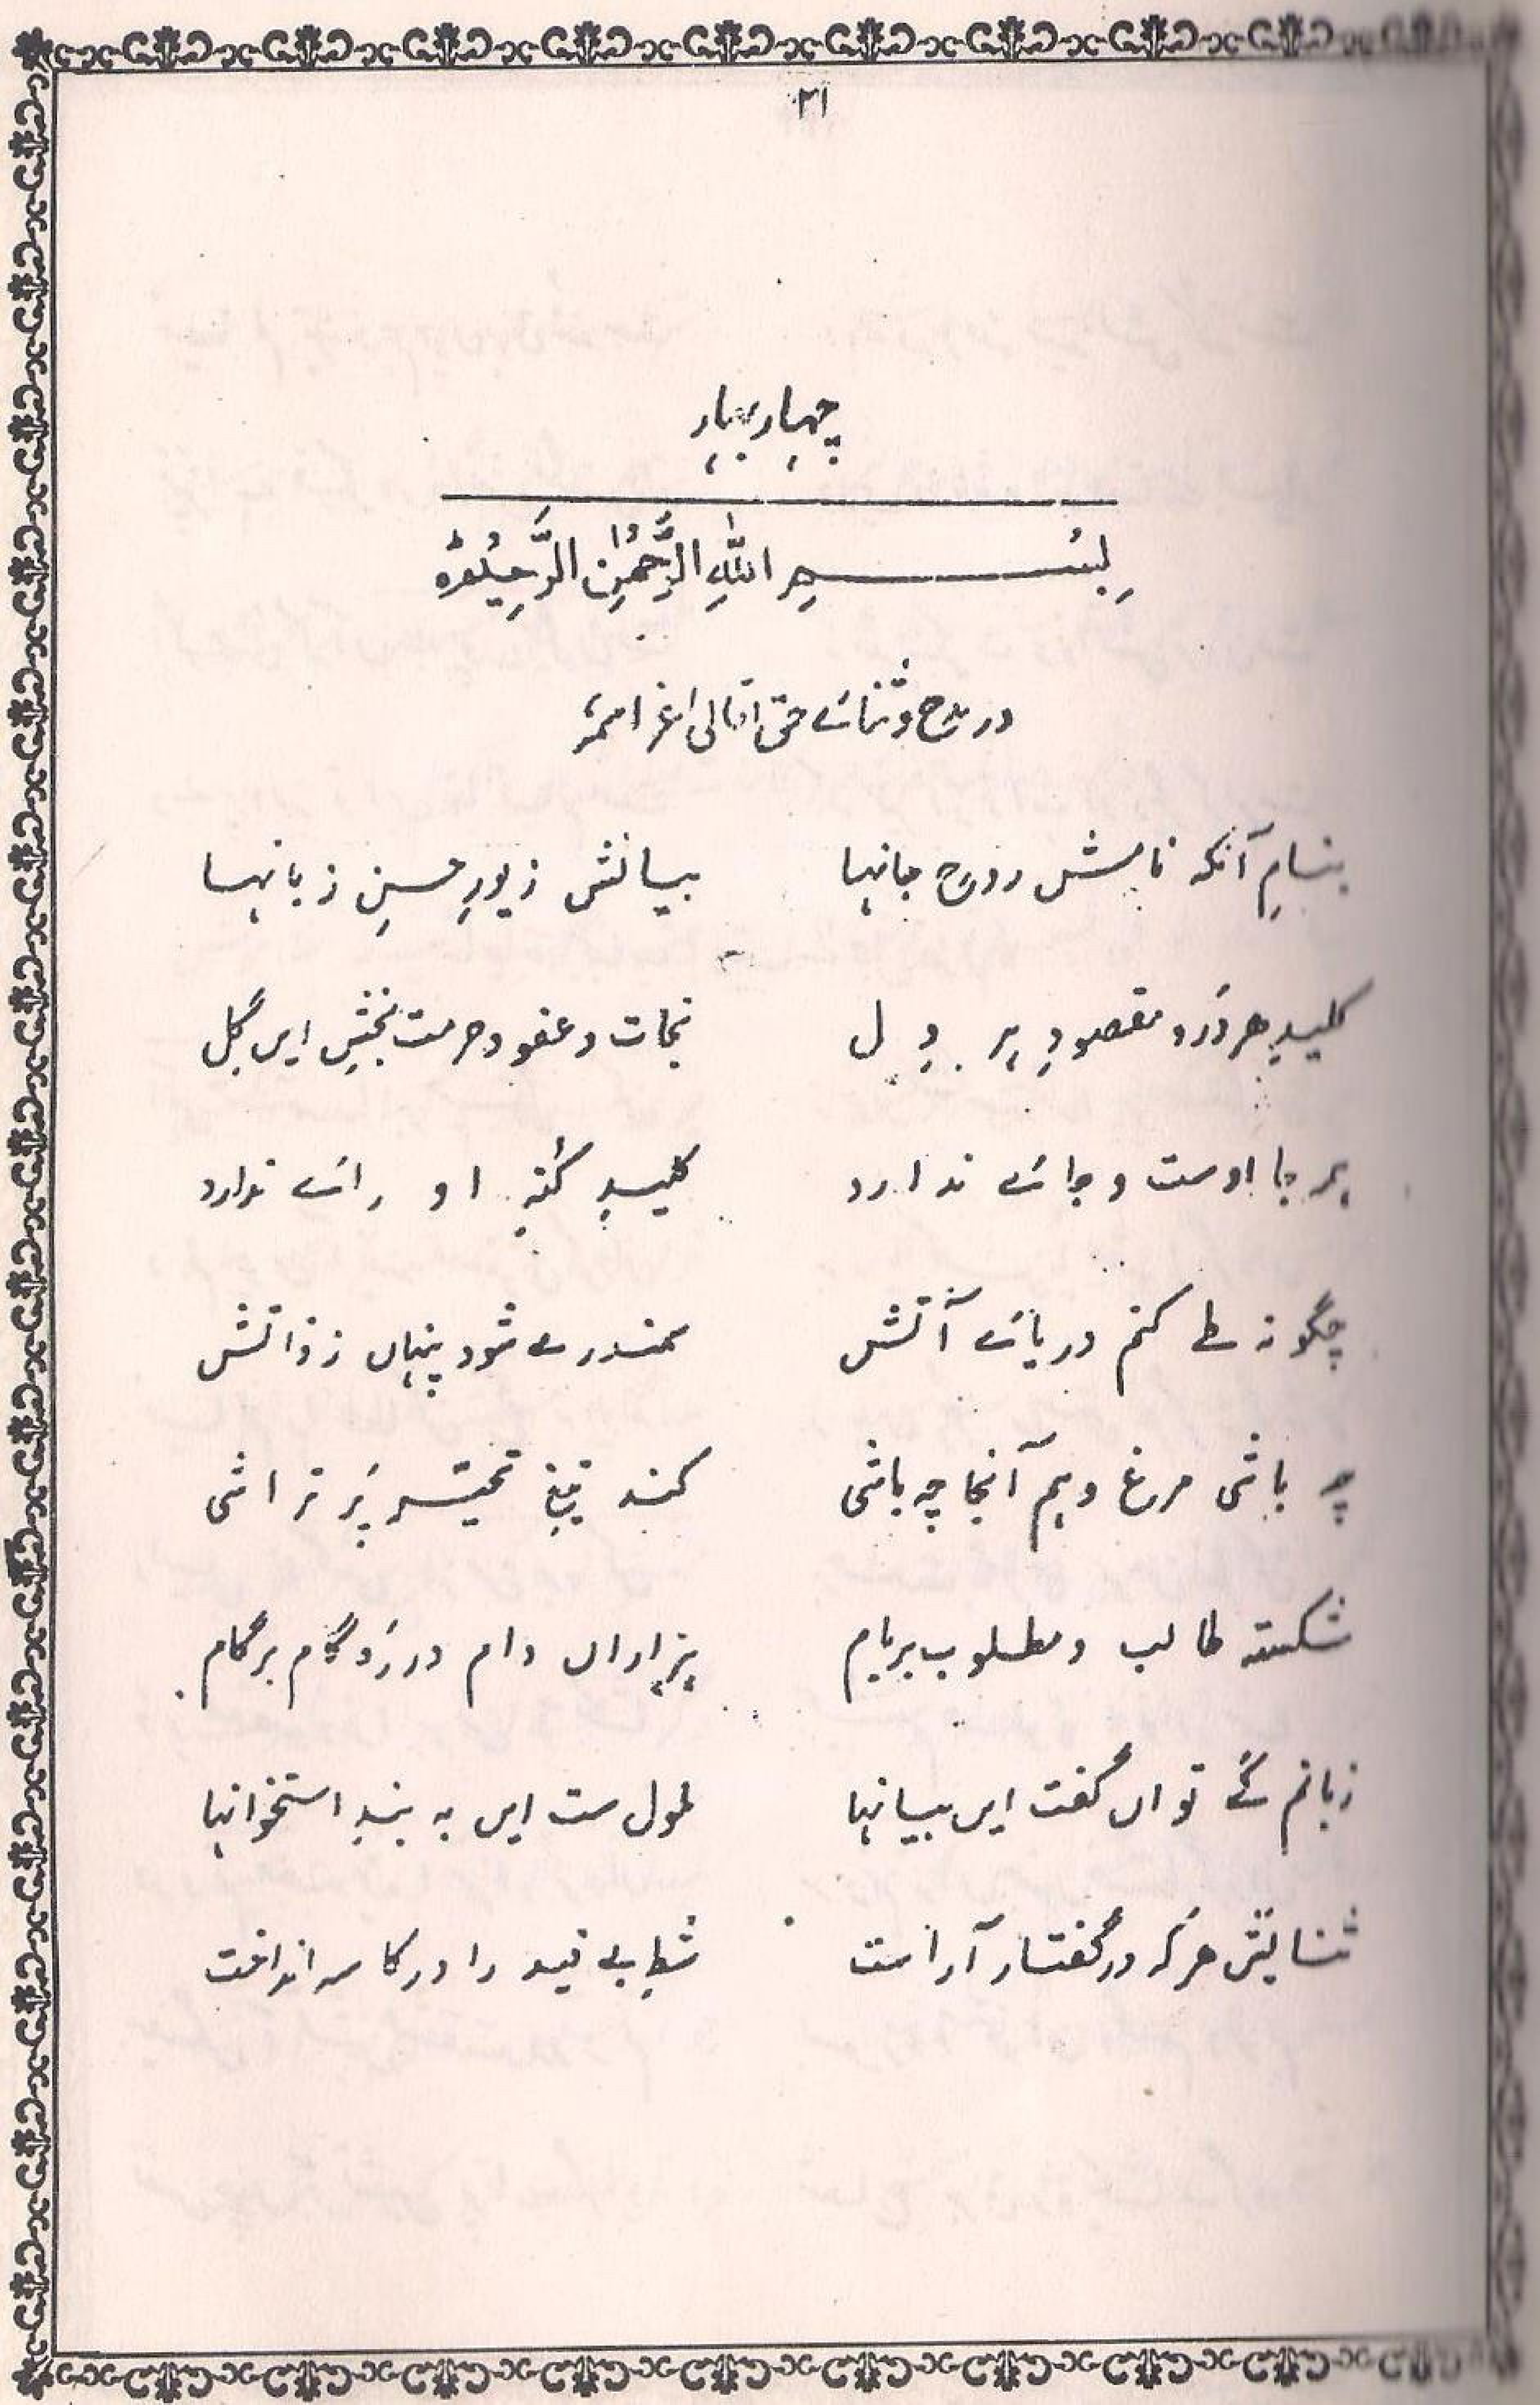 ۲۱
چہار بہار
بِسْمِ اللّٰهِ الرَّحْمٰنِ الرَّحِيْمِ
در مدح و ثنائے حق تعالیٰ
بنامِ آنکہ نامش روح جانہا بیانش زیورِ حسینِ زبانہا
کلیدِ ھر دَر و مقصودِ ہر دِل نجات و عفو و حرمت بخشِ ایں گِل
ہر جا اوست و جائے ندارد کلیدِ کُنہِ او رائے ندارد
چگونہ طے کنم دریائے آتش سمندرے شود پنہاں ز ذاتش
چہ باشی مرغ وہم آنجا چہ باشی کند تیغِ تحیّر پَر تراشی
شکستہ طالب و مطلوب بر بام ہزاراں دام در رَہ گام بر گام
زبانم کَے تواں گفت ایں بیانہا ملول ست ایں بہ بندِ استخوانہا
ثنایش ھر کہ در گفتار آراست شطِ بے قید را در کاسہ انداخت